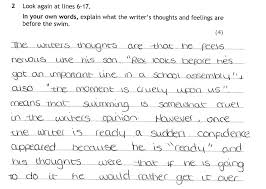 2 Look again at lines 6-17.
In your own words, explain what the writer's thoughts and feelings are
before the swim.
(4)
The writers thoughts are that he feels
nervous like his son. "Rex looks before he's
got an important line in a school assembly",
also "the moment is cruely upon us"
means that swimming is somewhat cruel
in the writers opinion However, once
the writer is ready a sudden confidence
appeared because he is "ready" and
his thoughts were that if he is going
to do it he would rather get it over